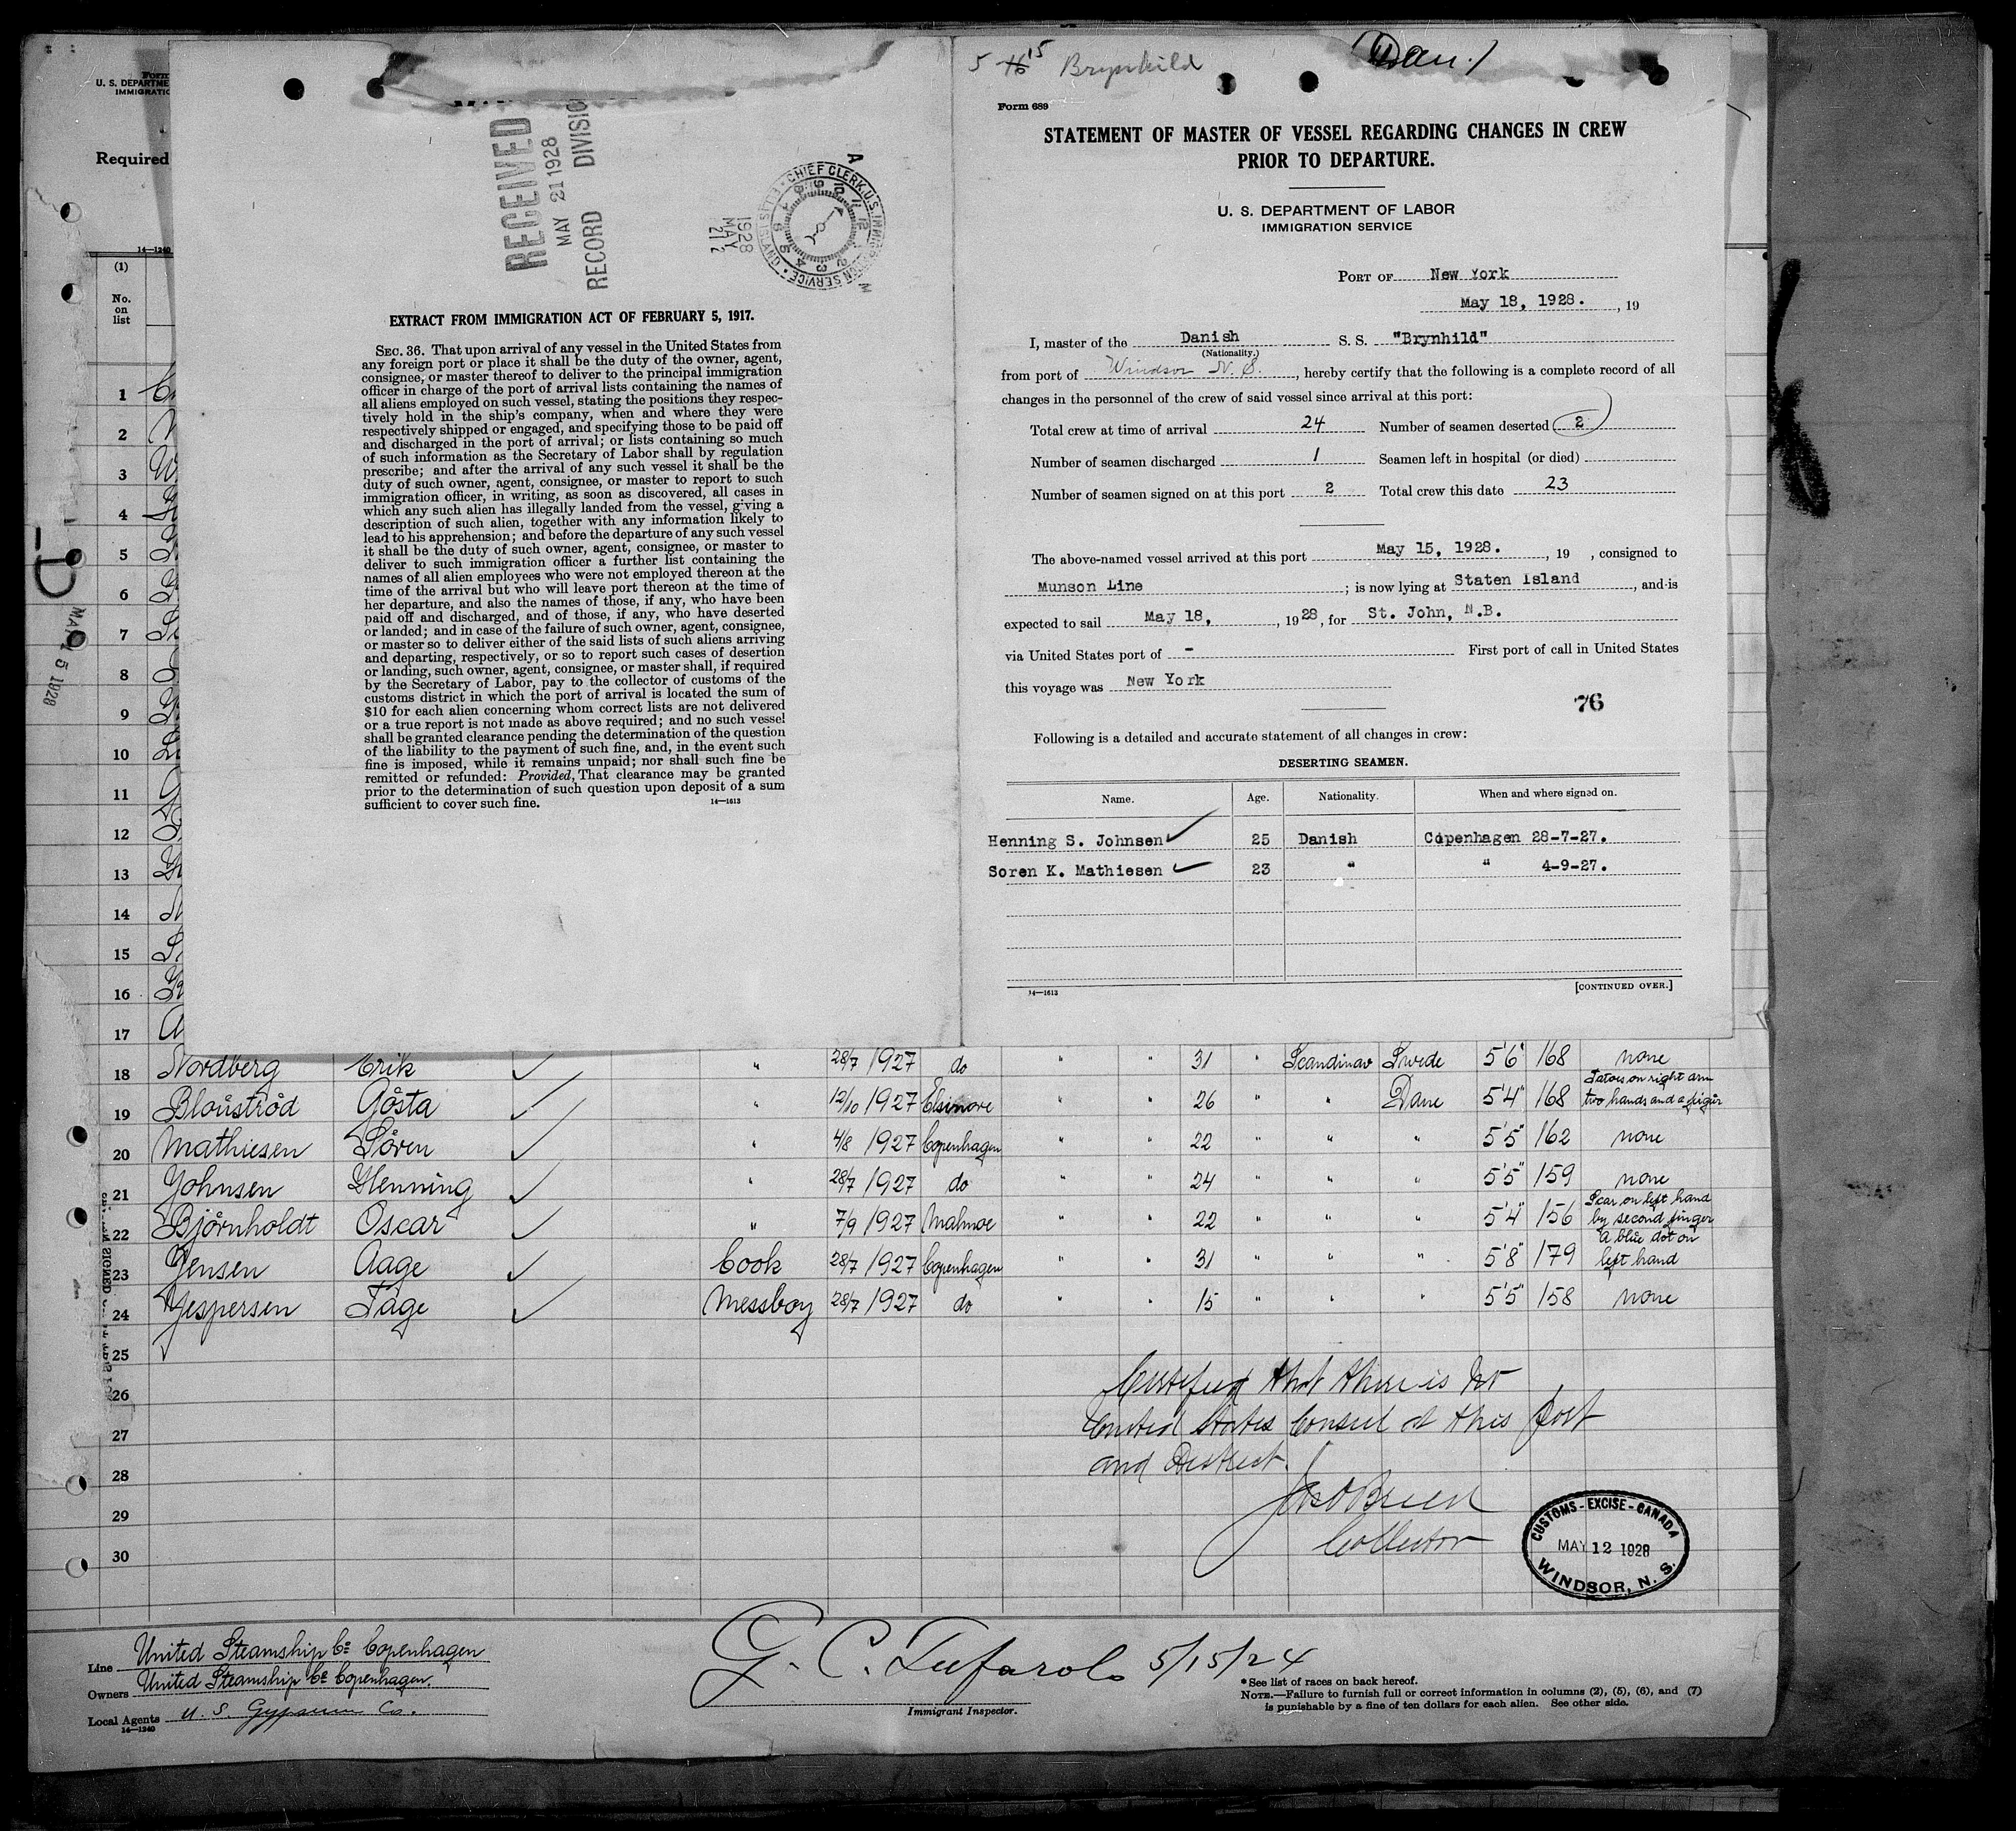 Form
U. S. DEPARTME
IMMIGRATIO
Required
14—1240
(1)
No.
on
list
1
2
3
4
5
6
7
8
9
10
11
12
13
14
15
16
17
MAY 15 1928
RECEIVED
MAY 21 1928
RECORD DIVISIO
1928
MAY
21
CHIEF CLERK, U.S. IMMIGRATION SERVICE • ELLIS ISLAND •
EXTRACT FROM IMMIGRATION ACT OF FEBRUARY 5, 1917.
SEC. 36. That upon arrival of any vessel in the United States from
any foreign port or place it shall be the duty of the owner, agent,
consignee, or master thereof to deliver to the principal immigration
officer in charge of the port of arrival lists containing the names of
all aliens employed on such vessel, stating the positions they respec-
tively hold in the ship's company, when and where they were
respectively shipped or engaged, and specifying those to be paid off
and discharged in the port of arrival; or lists containing so much
of such information as the Secretary of Labor shall by regulation
prescribe; and after the arrival of any such vessel it shall be the
duty of such owner, agent, consignee, or master to report to such
immigration officer, in writing, as soon as discovered, all cases in
which any such alien has illegally landed from the vessel, giving a
description of such alien, together with any information likely to
lead to his apprehension; and before the departure of any such vessel
it shall be the duty of such owner, agent, consignee, or master to
deliver to such immigration officer a further list containing the
names of all alien employees who were not employed thereon at the
time of the arrival but who will leave port thereon at the time of
her departure, and also the names of those, if any, who have been
paid off and discharged, and of those, if any, who have deserted
or landed; and in case of the failure of such owner, agent, consignee,
or master so to deliver either of the said lists of such aliens arriving
and departing, respectively, or so to report such cases of desertion
or landing, such owner, agent, consignee, or master shall, if required
by the Secretary of Labor, pay to the collector of customs of the
customs district in which the port of arrival is located the sum of
$10 for each alien concerning whom correct lists are not delivered
or a true report is not made as above required; and no such vessel
shall be granted clearance pending the determination of the question
of the liability to the payment of such fine, and, in the event such
fine is imposed, while it remains unpaid; nor shall such fine be
remitted or refunded: Provided, That clearance may be granted
prior to the determination of such question upon deposit of a sum
sufficient to cover such fine.
14—1613
5 16 15 Brynhild
Dan.
Form 689
STATEMENT OF MASTER OF VESSEL REGARDING CHANGES IN CREW
PRIOR TO DEPARTURE.
U. S. DEPARTMENT OF LABOR
IMMIGRATION SERVICE
PORT OF New York
May 18, 1928. , 19
I, master of the Danish S. S. "Brynhild"
(Nationality.)
from port of Windsor N. S. , hereby certify that the following is a complete record of all
changes in the personnel of the crew of said vessel since arrival at this port:
Total crew at time of arrival 24 Number of seamen deserted 2
Number of seamen discharged 1 Seamen left in hospital (or died)
Number of seamen signed on at this port 2 Total crew this date 23
The above-named vessel arrived at this port May 15, 1928. , 19 , consigned to
Munson Line ; is now lying at Staten Island , and is
expected to sail May 18, , 1928, for St. John, N.B.
via United States port of - First port of call in United States
this voyage was New York
76
Following is a detailed and accurate statement of all changes in crew:
DESERTING SEAMEN.
Name. Age. Nationality. When and where signed on.
Henning S. Johnsen 25 Danish Copenhagen 28-7-27.
Soren K. Mathiesen 23 " " 4-9-27.
14—1613 [CONTINUED OVER.]
18 Nordberg Erik " 28/7 1927 do " " 31 " Scandinav Swede 5'6" 168 none
19 Bloustrød Gösta " 12/10 1927 Elsinore " " 26 " " Dane 5'4" 168 Tatoes on right arm two hands and a figur
20 Mathiesen Søren " 4/8 1927 Copenhagen " " 22 " " " 5'5" 162 none
21 Johnsen Henning " 28/7 1927 do " " 24 " " " 5'5" 159 none
22 Bjørnholdt Oscar " 7/9 1927 Malmoe " " 22 " " " 5'4" 156 Scar on left hand by second finger
23 Jensen Aage Cook 28/7 1927 Copenhagen " " 31 " " " 5'8" 179 A blue dot on left hand
24 Jespersen Tage Messboy 28/7 1927 do " " 15 " " " 5'5" 158 none
25
26
27
28
29
30
Certified that there is no
United States Consul at this port
and District.
Jas O'Brien
Collector
CUSTOMS-EXCISE-CANADA
MAY 12 1928
WINDSOR, N. S.
Line United Steamship Co Copenhagen
Owners United Steamship Co Copenhagen.
Local Agents U. S. Gypsum Co.
14—1240
G. C. Tufarolo 5/15/24
Immigrant Inspector.
*See list of races on back hereof.
NOTE.—Failure to furnish full or correct information in columns (2), (5), (6), and (7)
is punishable by a fine of ten dollars for each alien. See other side.